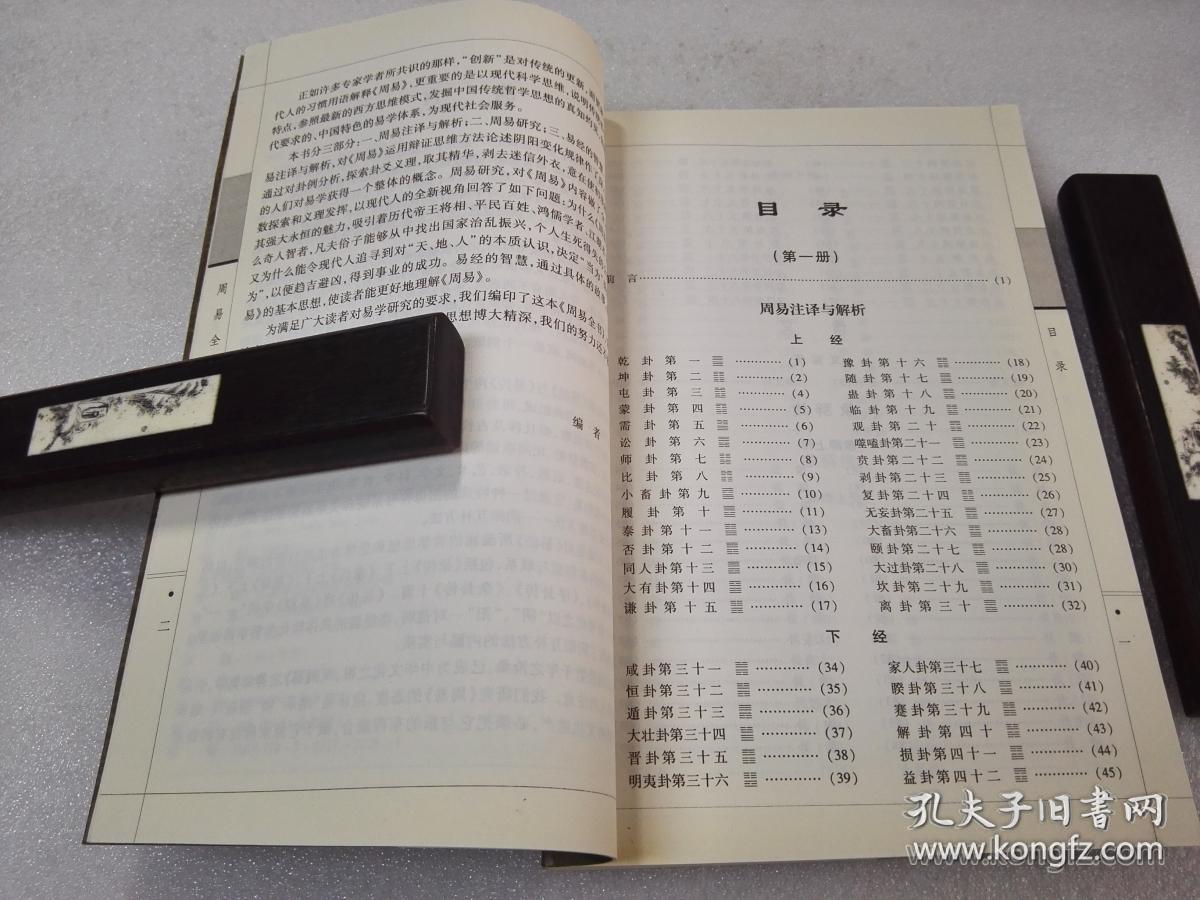 正如许多专家学者所共识的那样，“创新”是对传统的更新，
代人的习惯用语解释《周易》，更重要的是以现代科学思维，说明
特点，参照最新的西方思维模式，发掘中国传统哲学思想的真知灼见
代要求的、中国特色的易学体系，为现代社会服务。
本书分三部分：一、周易注译与解析；二、周易研究；三、易经的智慧
易注译与解析，对《周易》运用辩证思维方法论述阴阳变化规律作了
通过对卦例分析，探索卦爻义理，取其精华，剥去迷信外衣，意在使
的人们对易学获得一个整体的概念。周易研究，对《周易》内容做了
数探索和义理发挥，以现代人的全新视角回答了如下问题：为什么
其强大永恒的魅力，吸引着历代帝王将相、平民百姓、鸿儒学者、江
么奇人智者，凡夫俗子能够从中找出国家治乱振兴，个人生死得失的
又为什么能令现代人追寻到对“天、地、人”的本质认识，决定“当为”
为”，以便趋吉避凶，得到事业的成功。易经的智慧，通过具体的故事
易》的基本思想，使读者能更好地理解《周易》。
为满足广大读者对易学研究的要求，我们编印了这本《周易全书》
思想博大精深，我们的努力还
编者
周易全
二
目录
（第一册）
言 (1)
周易注译与解析
上经
乾卦第一 ䷀ ………… (1)
坤卦第二 ䷁ ………… (2)
屯卦第三 ䷂ ………… (4)
蒙卦第四 ䷃ ………… (5)
需卦第五 ䷄ ………… (6)
讼卦第六 ䷅ ………… (7)
师卦第七 ䷆ ………… (8)
比卦第八 ䷇ ………… (9)
小畜卦第九 ䷈ ………… (10)
履卦第十 ䷉ ………… (11)
泰卦第十一 ䷊ ………… (13)
否卦第十二 ䷋ ………… (14)
同人卦第十三 ䷌ ………… (15)
大有卦第十四 ䷍ ………… (16)
谦卦第十五 ䷎ ………… (17)
豫卦第十六 ䷏ ………… (18)
随卦第十七 ䷐ ………… (19)
蛊卦第十八 ䷑ ………… (20)
临卦第十九 ䷒ ………… (21)
观卦第二十 ䷓ ………… (22)
噬嗑卦第二十一 ䷔ ………… (23)
贲卦第二十二 ䷕ ………… (24)
剥卦第二十三 ䷖ ………… (25)
复卦第二十四 ䷗ ………… (26)
无妄卦第二十五 ䷘ ………… (27)
大畜卦第二十六 ䷙ ………… (28)
颐卦第二十七 ䷚ ………… (28)
大过卦第二十八 ䷛ ………… (30)
坎卦第二十九 ䷜ ………… (31)
离卦第三十 ䷝ ………… (32)
下经
咸卦第三十一 ䷞ ………… (34)
恒卦第三十二 ䷟ ………… (35)
遁卦第三十三 ䷠ ………… (36)
大壮卦第三十四 ䷡ ………… (37)
晋卦第三十五 ䷢ ………… (38)
明夷卦第三十六 ䷣ ………… (39)
家人卦第三十七 ䷤ ………… (40)
睽卦第三十八 ䷥ ………… (41)
蹇卦第三十九 ䷦ ………… (42)
解卦第四十 ䷧ ………… (43)
损卦第四十一 ䷨ ………… (44)
益卦第四十二 ䷩ ………… (45)
目录
一
孔夫子旧书网
www.kongfz.com